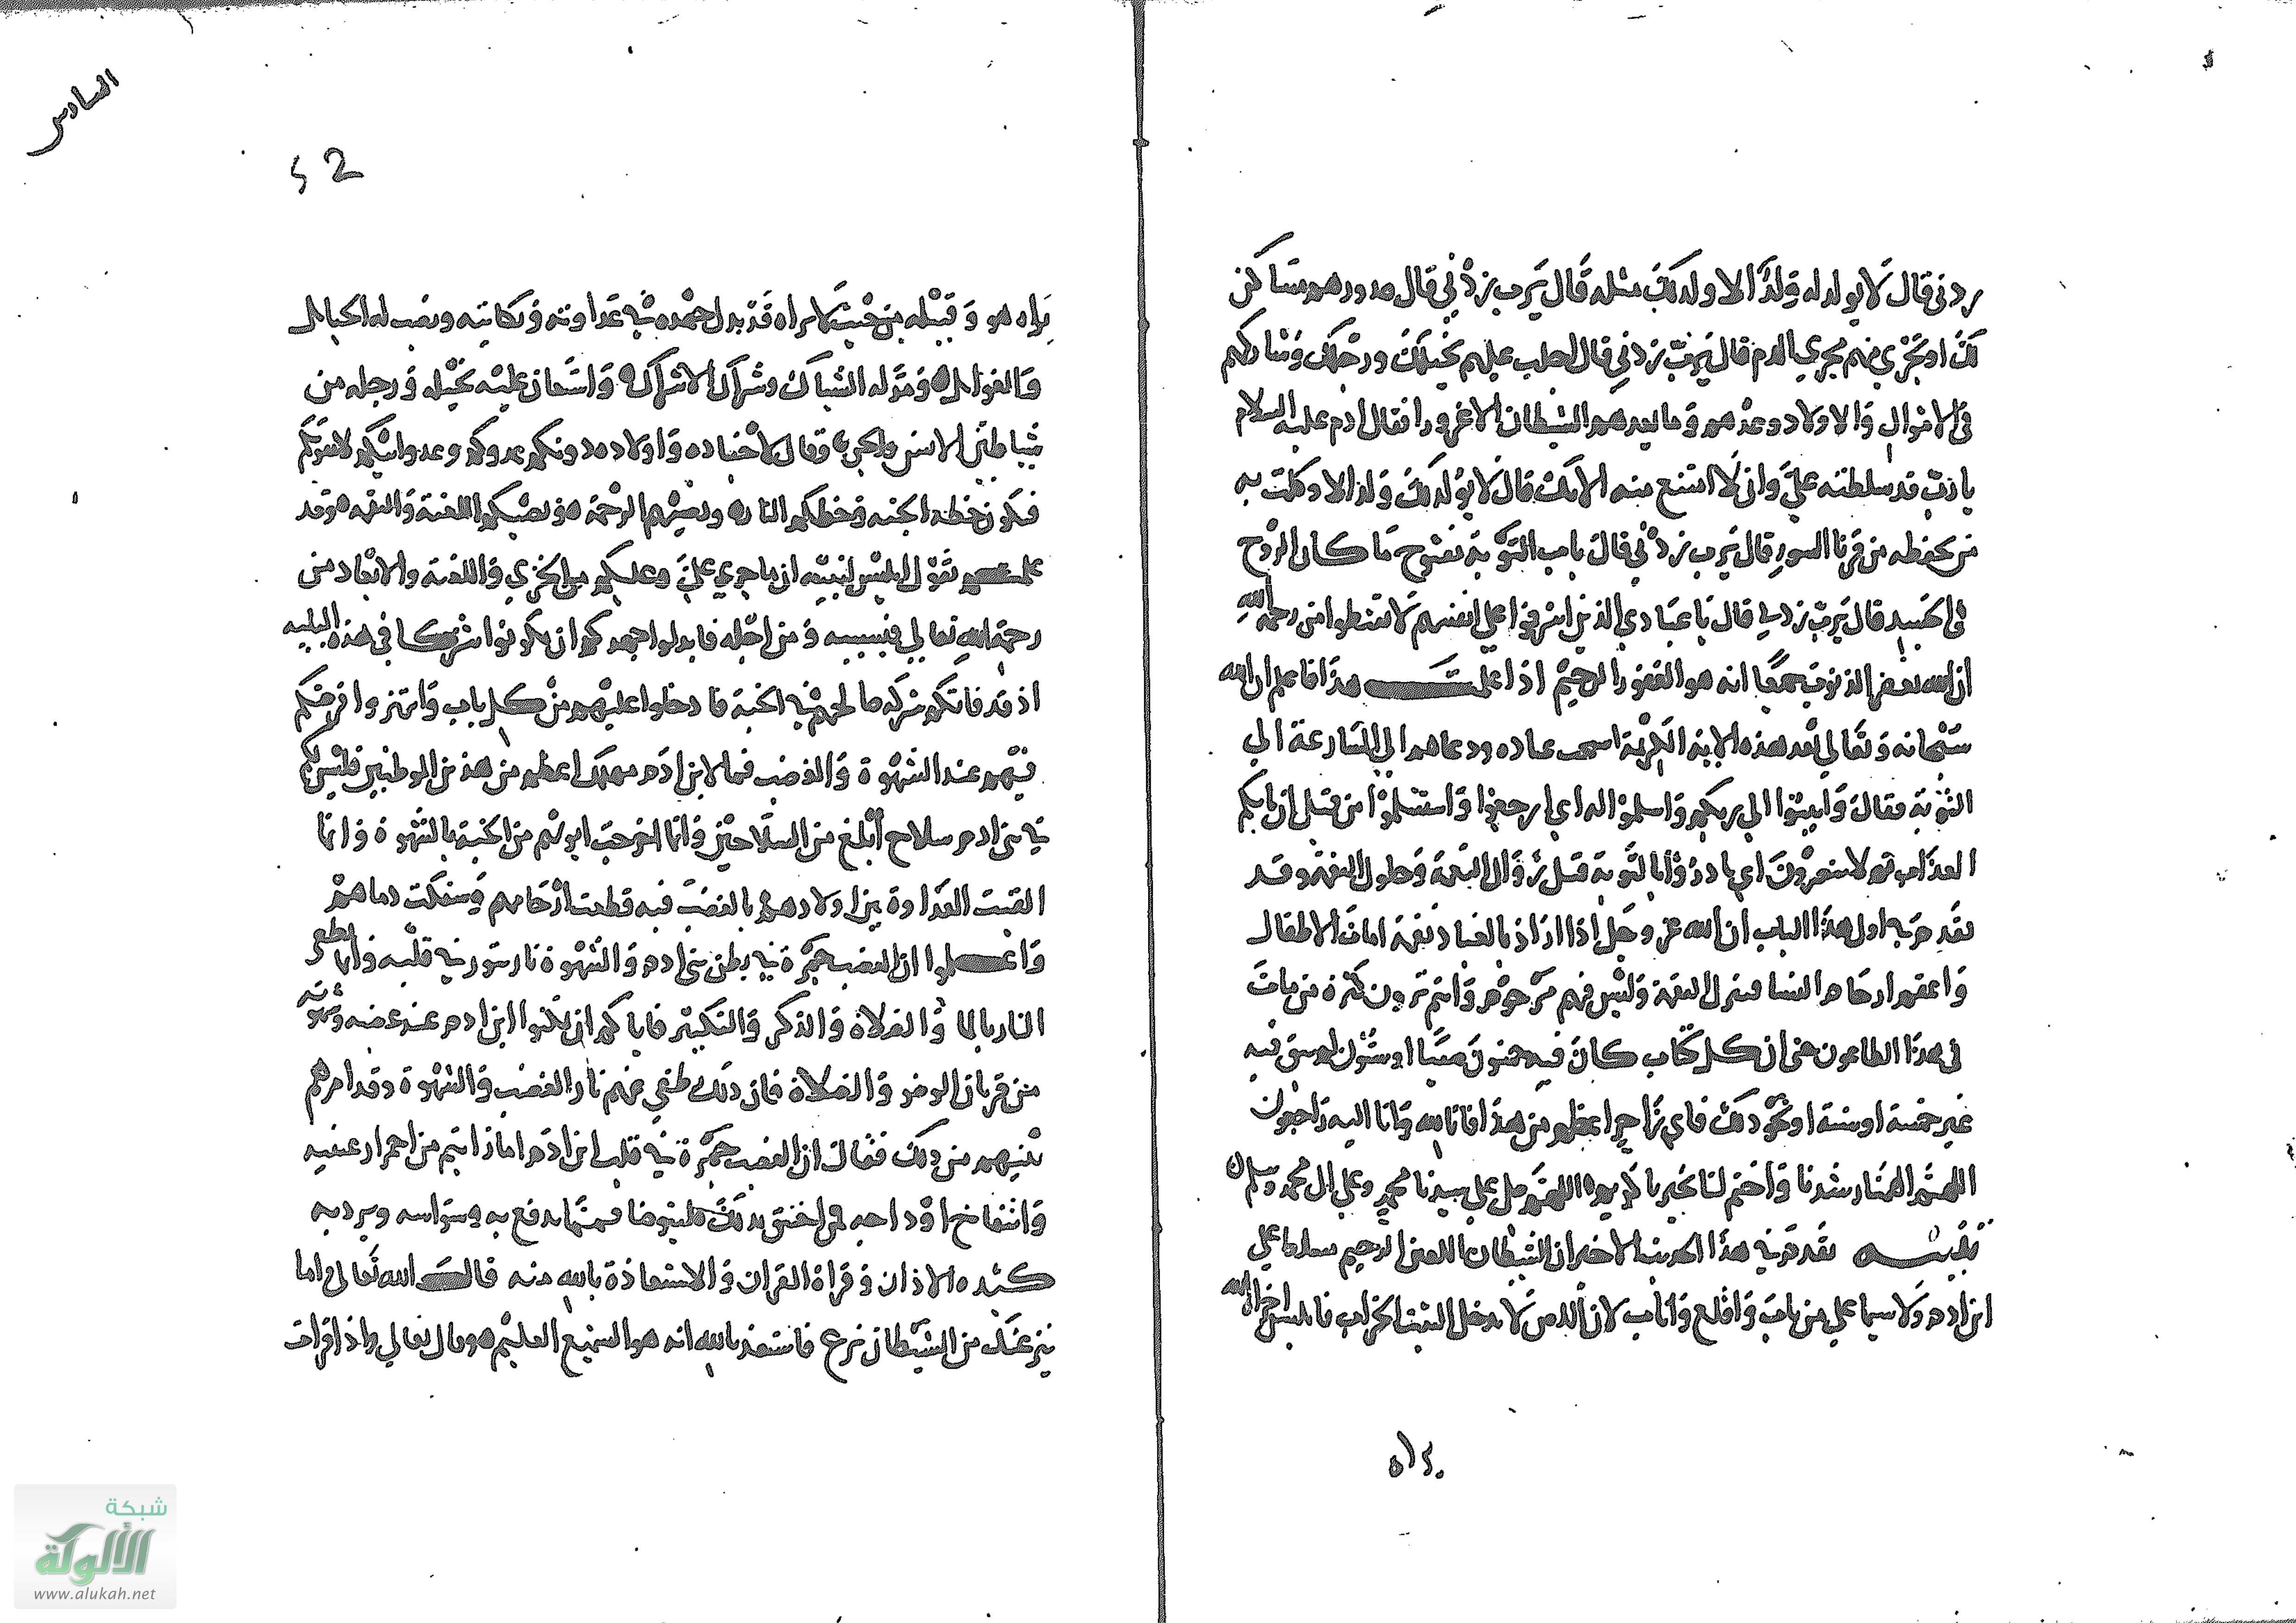 زدني قال لا يولد له ولد الا ولد لك مثله قال يرب زدني قال صدورهم مساكن
لك او تجري منهم مجري الدم قال يرب زدني قال اجلب عليهم بخيلك ورجلك وشاركهم
في الاموال والاولاد وعدهم وما يعدهم الشيطان الا غرورا فقال ادم عليه السلام
يا رب قد سلطته علي وان لا امتنع منه الا بك قال لا يولد لك ولد الا وكلت به
من يحفظه من قرنا السوء قال يرب زدني قال باب التوبة مفتوح ما كان الروح
في الجسد قال يرب زدني قال يا عبادي الذين اسرفوا علي انفسهم لا تقنطوا من رحمة الله
ان الله يغفر الذنوب جميعا انه هو الغفور الرحيم اذا علمت هذا فاعلم ان الله
سبحانه وتعالي بعد هذه الاية الكريمة عباده ودعاهم الي المسارعة الي
التوبة فقال وانيبوا الي ربكم واسلموا له اي ارجعوا واستسلموا من قبل ان يايكم
العذاب ثم لا تنصرون اي بادروا بالتوبة قبل زوال النعمة وحلول النقمة وقد
تقدم في اول هذا الباب ان الله عز وجل اذا اراد بالعباد نقمة امات الاطفال
واعقم ارحام النسا فتنزل النقمة وليس فيهم مرحوم وانتم ترون كثرة من مات
في هذا الطاعون حتي ان كل كتاب كان فيه خمسون صبيا او ستون لم يبق فيه
غير خمسة او ستة او نحو ذلك فاي زاجر اعظم من هذا فانا لله وانا اليه راجعون
اللهم الهمنا رشدنا واختم لنا بخير يا كريم اللهم صل علي سيدنا محمد وعلي ال محمد وسلم
تنبيه تقدم في هذا الحديث الاخير ان الشيطان اللعين الرجيم سلط علي
ابن ادم ولا سيما علي من تاب واقلع واناب لان اللص لا يدخل البيت الخراب فابليس اخزاه الله
52
السادس
يراه هو وقبيله من حيث لا يراه قد بذل جهده في عداوته ونكايته ونصب له الحبايل
والغوايل ومد له الشباك وشراك الاشراك واستعان عليه بخيله ورجله من
شياطين الانس والجن وقال لاجناده واولاده دونكم عدوكم وعدو ابيكم لا يفوتكم
فيكون حظه الجنة وحظكم النار ونصيبهم الرحمة ونصيبكم اللعنة والنقمة وقد
علمتم يقول ابليس لبنيه ان ما جري علي وعليكم من الخزي واللعنة والابعاد من
رحمة الله تعالي فبسببه ومن اجله فابذلوا جهدكم ان يكونوا شركا في هذه البلية
اذ قد فاتكم شركة صالحهم في الجنة فادخلوا عليهم من كل باب وانتهزوا فرصتكم
فيهم عند الشهوة والغضب فما لابن ادم مهلك اعظم من هذين الموطنين فليس لكم
في بني ادم سلاح ابلغ من السلاحين وانما اخرجت ابويهم من الجنة بالشهوة وانما
القيت العداوة بين اولادهم بالغضب فبه قطعت ارحامهم وسفكت دماهم
واعلموا ان الغضب جمرة في بطن بني ادم والشهوة نار تثور في قلبه وانما تطفي
النار بالما والصلاة والذكر والتكبير فاياكم ان تمكنوا ابن ادم عند غضبه وشهوته
من قربان الوضو والصلاة فان ذلك يطفي عنهم نار الغضب والشهوة وقد امرهم
نبيهم من ذلك فقال ان الغضب جمرة في قلب ابن ادم اما رايتم من احمرار عينيه
وانتفاخ اوداجه فمن احس بذلك فليتوضا فمما يدفع به وسواسه ويرد به
كيده الاذان وقراة القران والاستعاذة بالله منه قال الله تعالي واما
ينزغنك من الشيطان نزغ فاستعذ بالله انه هو السميع العليم وقال تعالي واذا قرات
شبكة
الألوكة
www.alukah.net